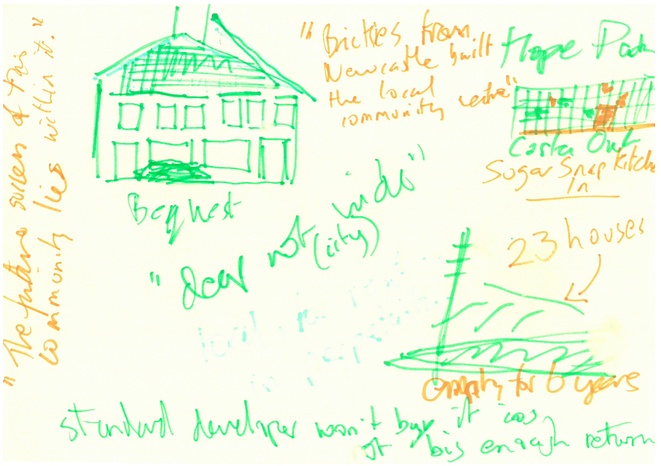 "The future success of this
community lies within it."
"Brickies from
Newcastle built
the local
community centre"
Hope Park
Costa Out
Sugar Snap Kitchen
In
Bequest
"dear not
(city)
23 houses
empty for 6 years
standard developer won't buy it cos
not big enough return